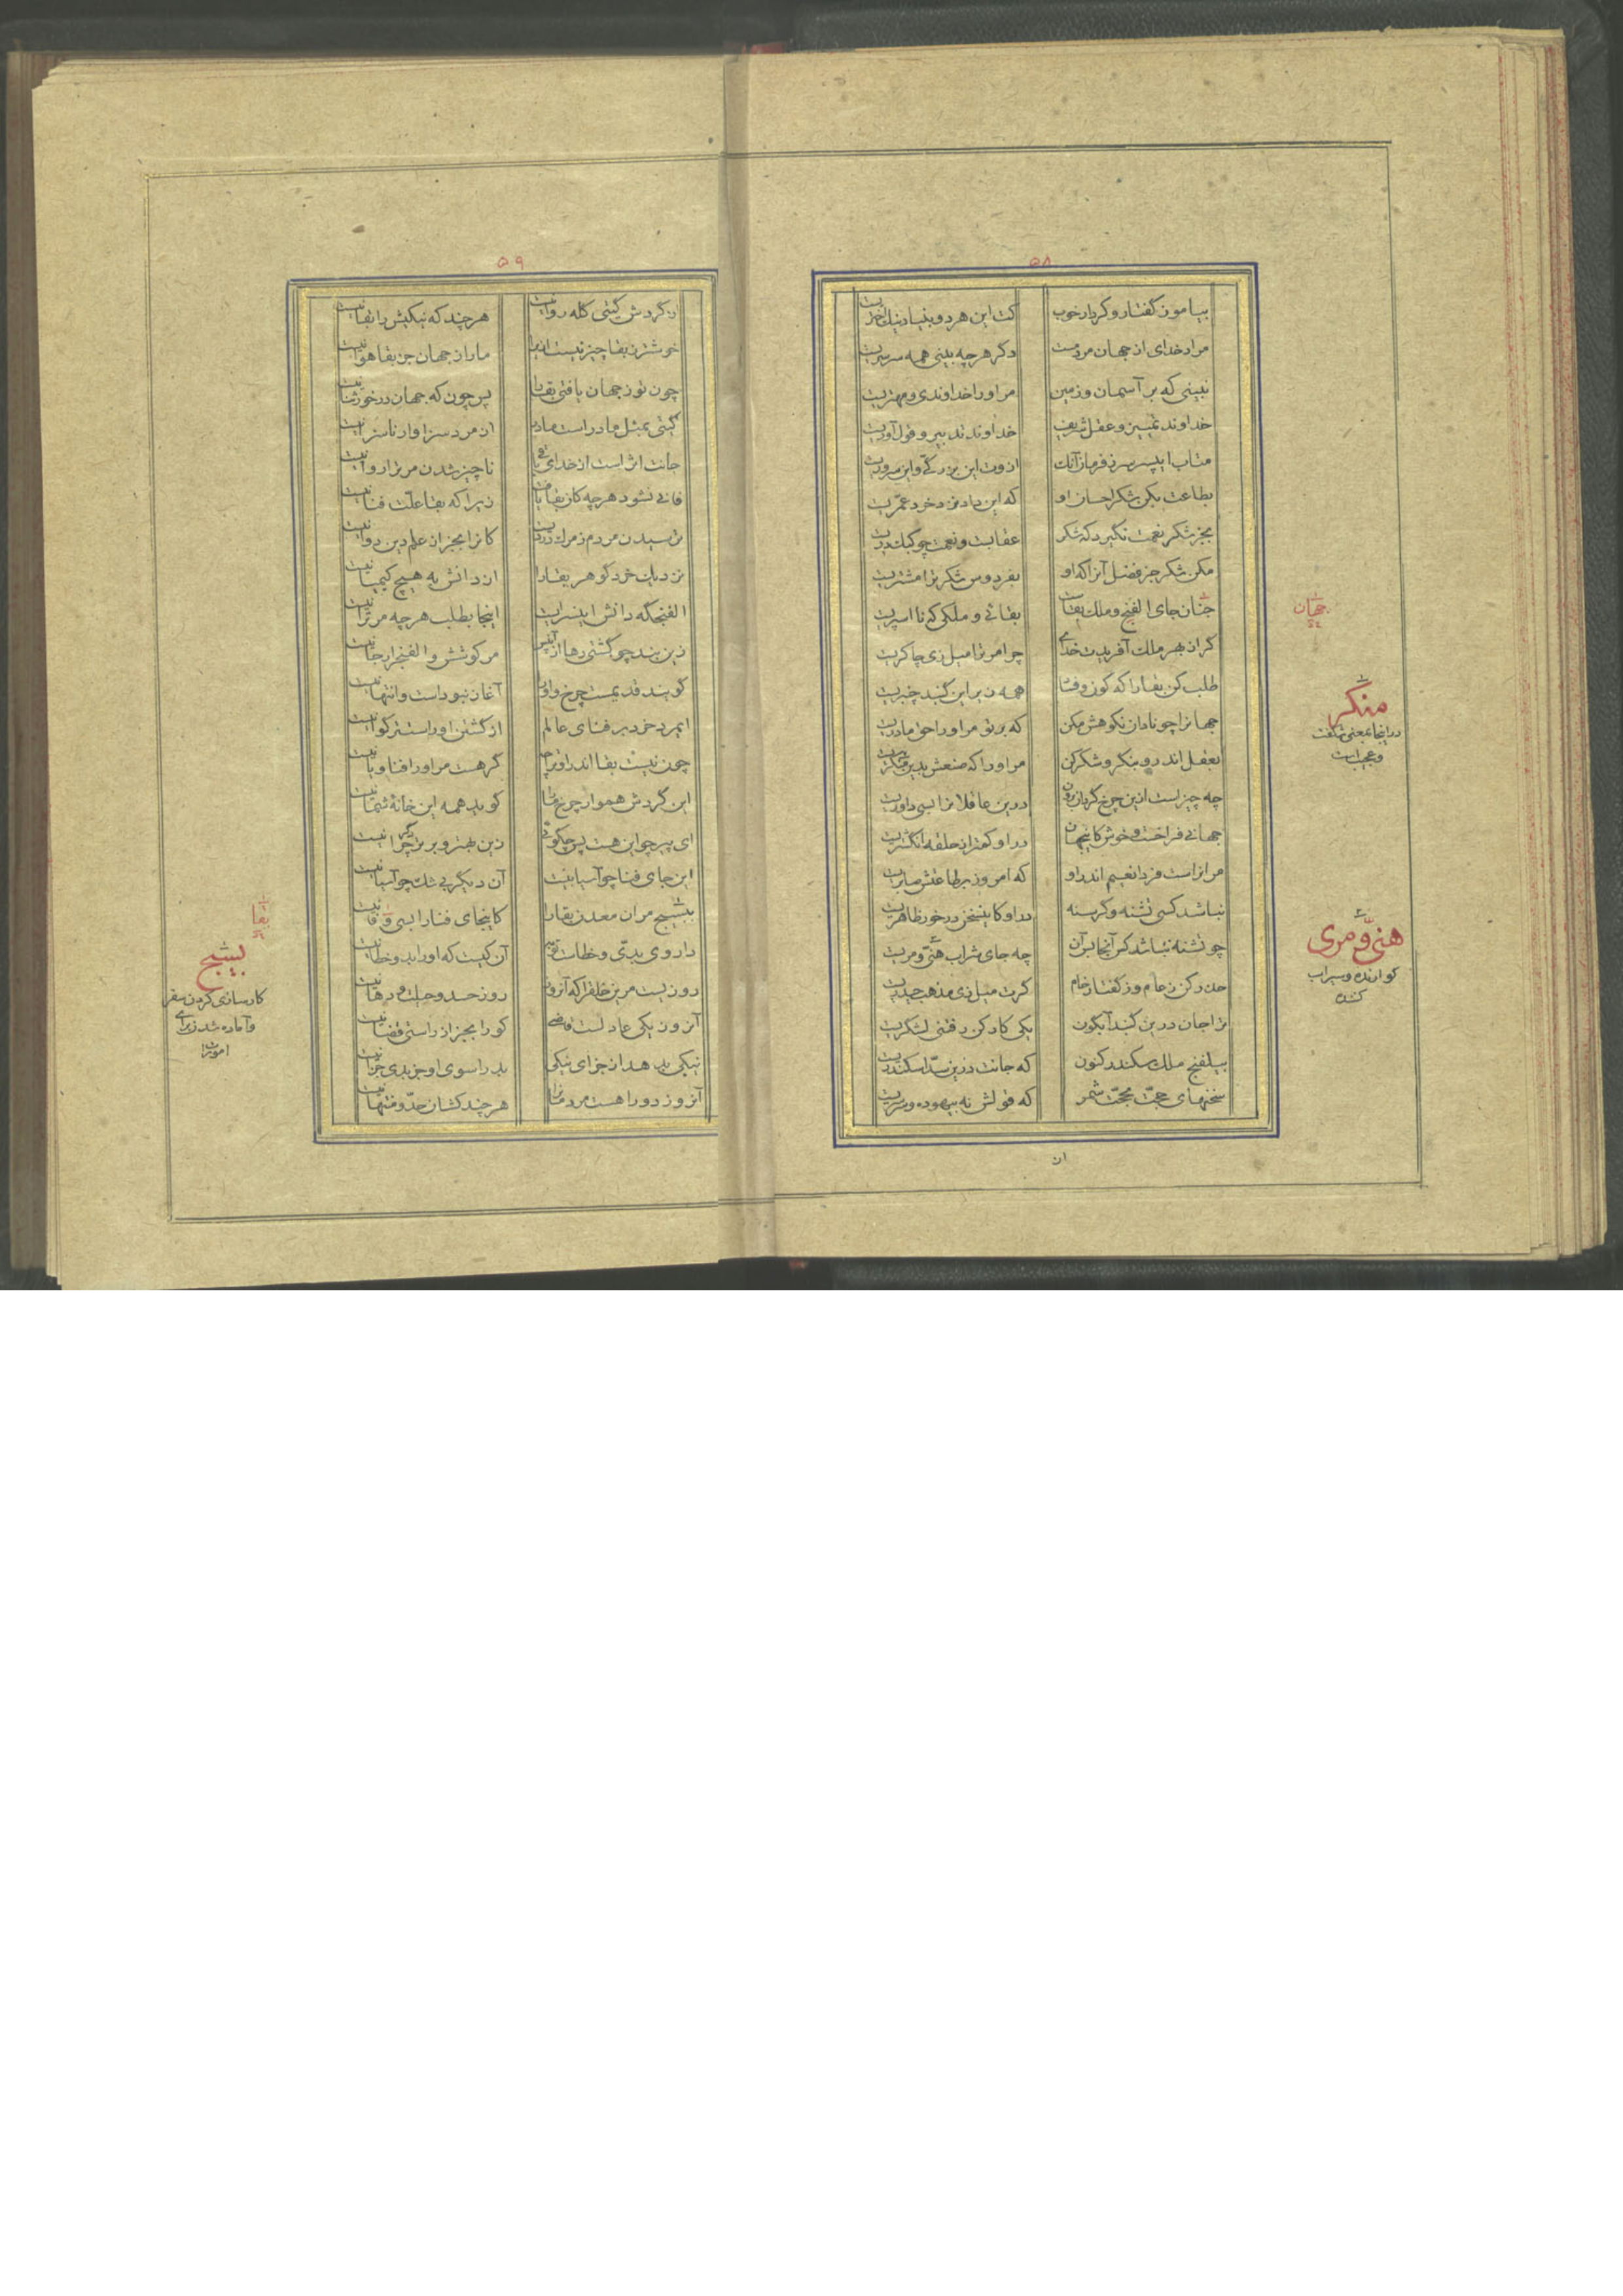 ۵۸
بیاموز گفتار و کردار خوب
کت این هر دو بنیاد نیک اختریست
مراد خدای از جهان مردمست
دگر هرچه بینی همه سرسریست
نبینی که بر آسمان و زمین
مر او را خداوندی و مهتریست
خداوند تمییز و عقل شریف
خداوند تدبیر و قول آوریست
متاب ای پسر سر ز فرمان آنک
ازوت این بزرگی و این سروریست
بطاعت بکن شکر احسان او
که این داد نزد خرد عمریست
بجز شکر نعمت نگیرد که شکر
عقابست و نعمت چو کبک دریست
مکن شکر جز فضل آنرا که او
بفردوس شکر ترا مشتریست
جنان جای الفنج و ملک بقاست
بقائی و ملکی که نا اسپریست
گر از بهر ملک آفریدت خدای
چرا مر ترا میل زی چاکریست
طلب کن بقا را که کون و فنا
همه زیر این گنبد چنبریست
جهانرا چو نادان نکوهش مکن
که بر تو مر او را حق مادریست
بعقل اندرو بنگر و شکر کن
مر او را که صنعش بدین منکریست
چه چیز است ازین چرخ گردان برون
درین عاقلانرا بسی داوریست
جهانی فراخست و خوش کاینجهان
درو کمتر از حلقه انگشتریست
مر انراست فردا نعیم اندرو
که امروز بر طاعتش صابریست
نباشد کسی تشنه و گرسنه
درو کاینسخن درخور ظاهریست
چو تشنه نباشد کس آنجا بر آن
چه جای شراب هنیّ و مریست
حذر کن ز عام و ز گفتار خام
گرت میل زی مذهب حیدریست
ترا جان درین گنبد آبگون
یکی کارکن رفتنی لشکریست
بیلفنج ملک سکندر کنون
که جانت درین سدّ اسکندریست
سخنهای حجّت بحجّت شمر
که قولش نه بیهوده و سرسریست
جهان
منکر
در اینجا بمعنی شگفت
و عجیب است
هنیّ و مری
گوارنده و سیراب
کننده
از
۵۹
از گردش گیتی گله روا نیست
هرچند که نیکیش را بقا نیست
خوشتر ز بقا چیز نیست ازیرا
ما را ز جهان جز بقا هوا نیست
چون تو ز جهان یافتی بقا را
پس چون که جهان درخور ثنا نیست
گیتی بمثل مادر است مادر
از مرد سزاوار ناسزا نیست
جانت اثر است از خدای باقی
ناچیز شدن مر ترا روا نیست
فانی نشود هرچه کان بقا یافت
زیرا که بقا علّت فنا نیست
ترسیدن مردم ز مرگ دردیست
کانرا بجز از علم دین دوا نیست
نزدیک خرد گوهر بقا را
از دانش به هیچ کیمیا نیست
الفنجگه دانش این سرایست
اینجا بطلب هرچه مر ترا نیست
زین بند چو گشتی رها از آن پس
مر کوشش و الفنج را رجا نیست
گویند قدیمست چرخ و او را
آغاز نبوداست و انتها نیست
ای مرد خرد بر فنای عالم
از گشتن او راست تر گوا نیست
چون نیست بقا اندر او ترا چه
گر هست مر او را فنا و یا نیست
این گردش هموار چرخ ما را
گوید همه این خانهٔ شما نیست
ای پیر چو این هست پس چگوئی
زین بهتر و برتر دگر چرا نیست
این جای فنا چو آسیا نیست
آن دیگر بی شک چو آسیا نیست
ببسیج مر آن معدن بقا را
کاینجای فنا را بسی وفا نیست
داروی بدیّ و خطاست توبه
آن کیست که او را بد و خطا نیست
روزیست مر این خلق را که آنروز
روز حسد و حیلت و دها نیست
آنروز یکی عادلست قاضی
کو را بجز از راستی قضا نیست
نیکی بدهد از جزای نیکی
بد را سوی او جز بدی جزا نیست
آنروز دو راهست مردمانرا
هرچند کشان حدّ و منتها نیست
بقا
بسیج
کارسازی کردن سفر
و آماده شدن برای
امور